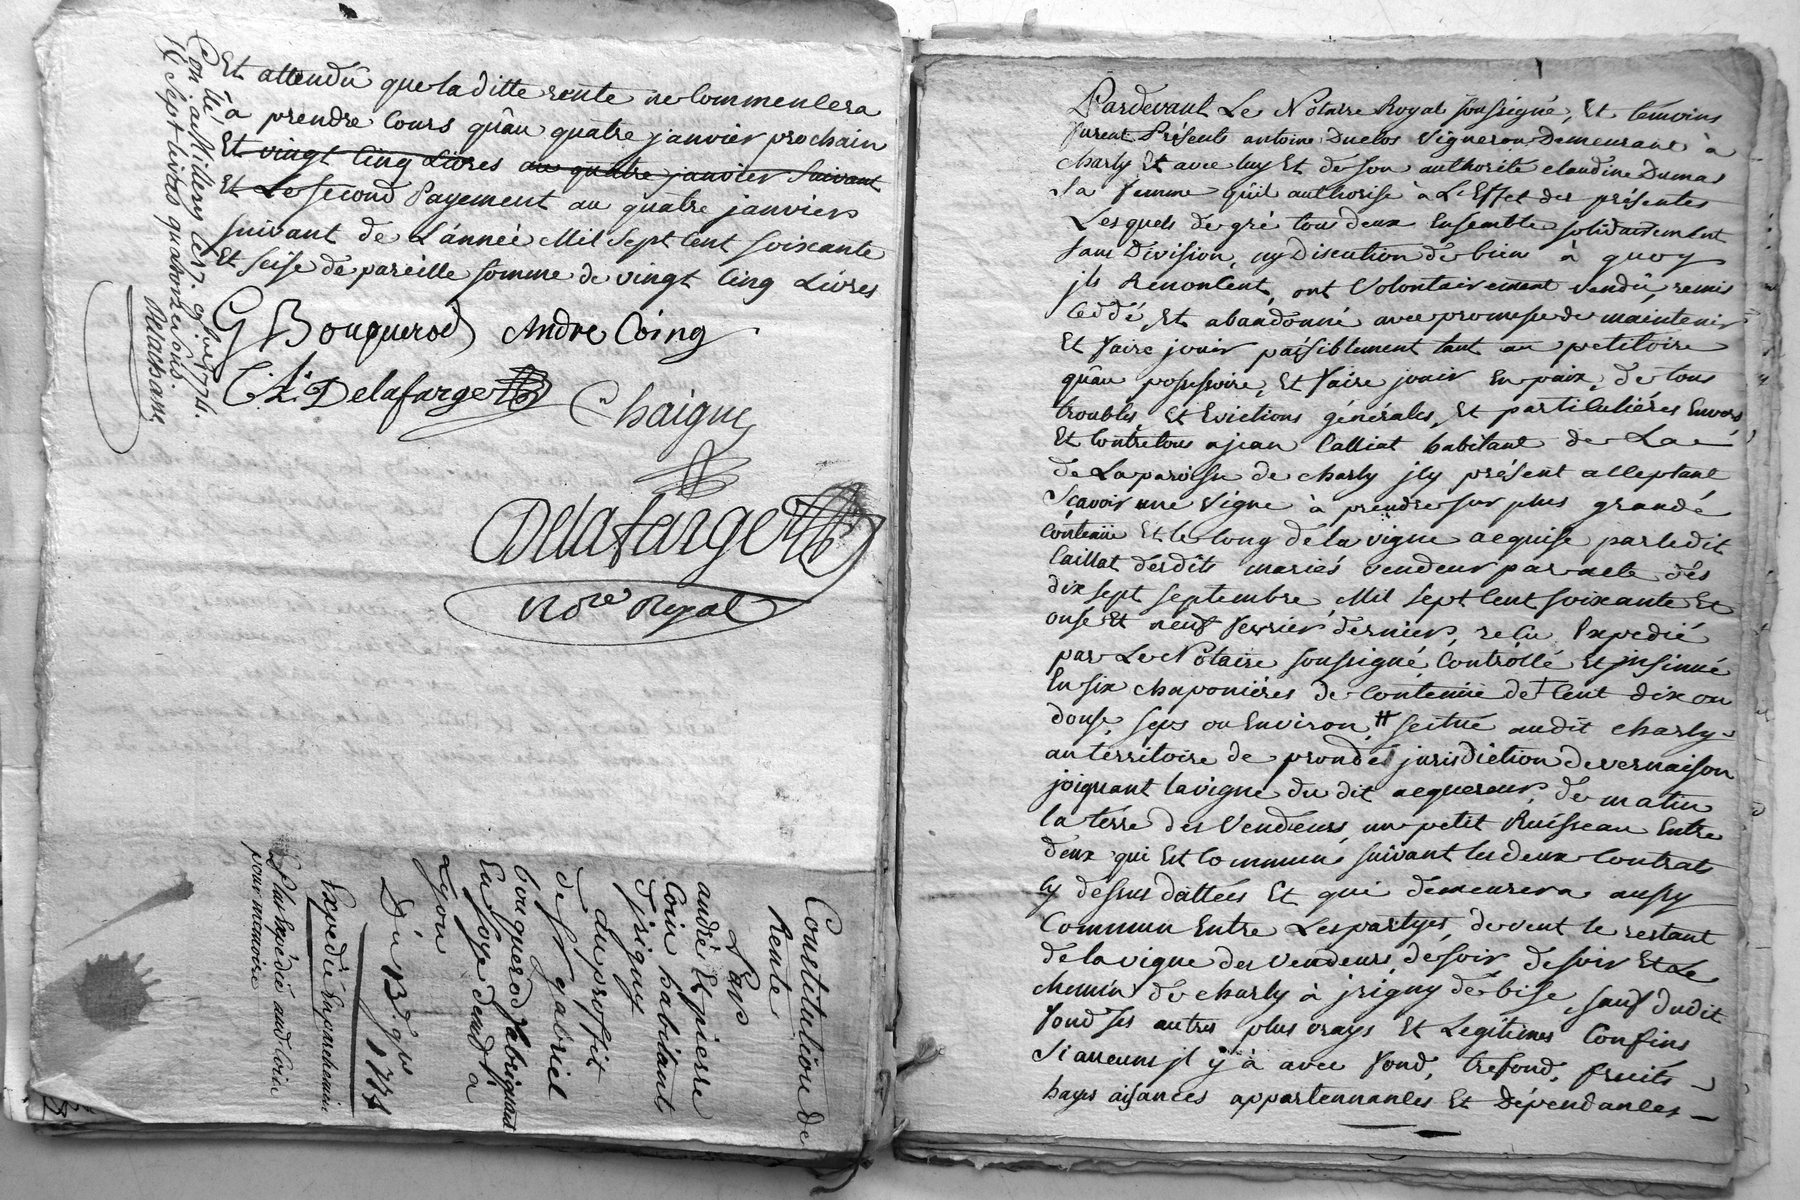 Et attendu que la ditte rente ne Commencera
a prendre Cours qu'au quatre janvier prochain
Et vingt Cinq Livres au quatre janvier Suivant
Et Le Second Payement au quatre janvier
suivant de L'année Mil Sept Cent soixante
Et seise de pareille somme de vingt Cinq Livres
G Bouquerod André Coing
Delafarge
Chaigne
Delafarge
No.re Royal
Con.lé à Millery le 17. 9bre 1774.
Sept livres quatorze sous.
Delachan
Constitution de
Rente
Par
andré Et pierre
Coin habitant
d'jrigny
du profit
de S.r gabriel
bouquerod fabriquant
En soye demt à
Lyon
Du 13.e 9bre 1774
Expedié En parchemin
Le plus Expédié aud Coin
pour memoire
Pardevant Le Notaire Royal soussigné, Et témoins
furent Présents antoine Duclos Vigneron Demeurant à
charly Et avec luy Et de son authorité claudine Dumas
Sa femme qu'il authorise à L'Effet des présentes
Lesquels de gré tous deux Ensemble solidairement
sans Division, ny Discution de bien à quoy
jls Renoncent, ont Volontairement vendu, remis
Ceddé, Et abandonné avec promesse de maintenir
Et faire jouir paisiblement tant au petitoire
qu'au possessoire, Et faire jouir En paix, de tous
troubles, Et Evictions générales, Et particuliéres Envers
Et Contre tous a jean Calliat habitant de La
de La paroisse de charly jcy présent acceptant
Sçavoir une Vigne à prendre sur plus grande
Contenüe Et le long de la vigne acquise par ledit
Caillat desdits mariés vendeur par acte des
dix sept septembre Mil Sept Cent soixante Et
onse Et neuf fevrier dernier, reçu Expedié
par Le Notaire soussigné, Controllé Et jnsinué
En six chaponiéres de Contenüe de Cent dix ou
douse seps ou Environ, # scitué audit charly
au térritoire de prondes jurisdiction de vernaison
joignant la vigne du dit acquereur de matin
la térre des Vendeurs, un petit Ruisseau Entre
deux qui Est Commun suivant les deux Contrats
Cy dessus dattées Et qui demeurera aussy
Commun Entre Les partyes, de vent le restant
de la vigne des vendeurs, de soir de soir Et Le
chemin de charly à jrigny de bise, sauf dudit
fond ses autres plus vrays Et Legitimes Confins
Si aucuns jl y à avec fond, trefond, fruits
hayes aisances appartennances Et Dépendances